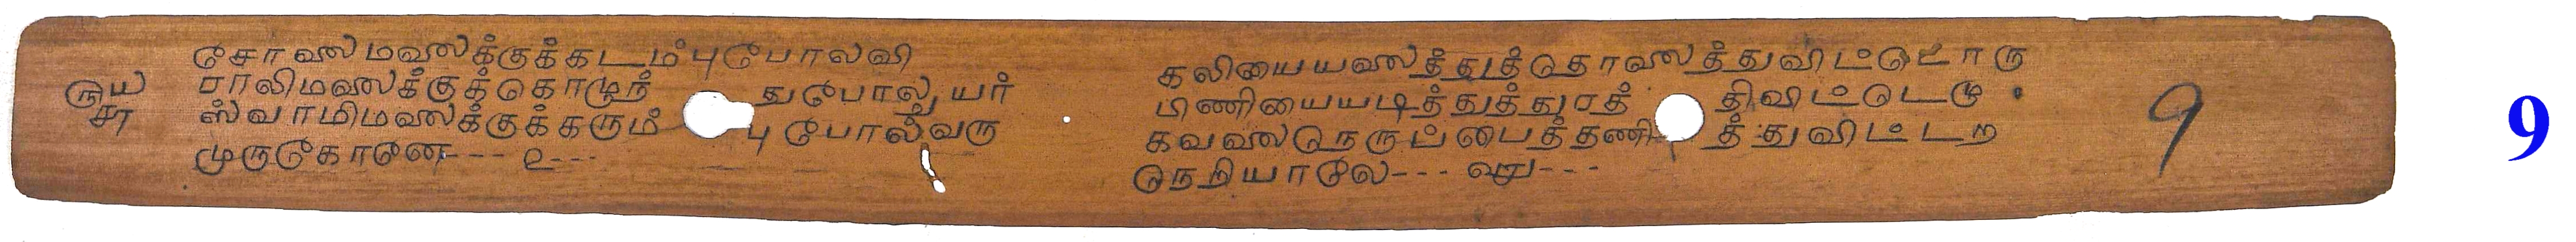 சோலைமலைக்குக்கடம்புபோலவி
ராலிமலைக்குக்கொழுந் துபோலுயர்
ஸ்வாமிமலைக்குக்கரும் புபோல்வரு
முருகோனே--- ௨---
கலியையயலைத்துத்தொலைத்துவிட்டொரு
பிணியையயடித்துத்துரத் திவிட்டெழு
கவலைநெருப்பைத்தணி த்துவிட்டற
நெறியாலே---
9
9